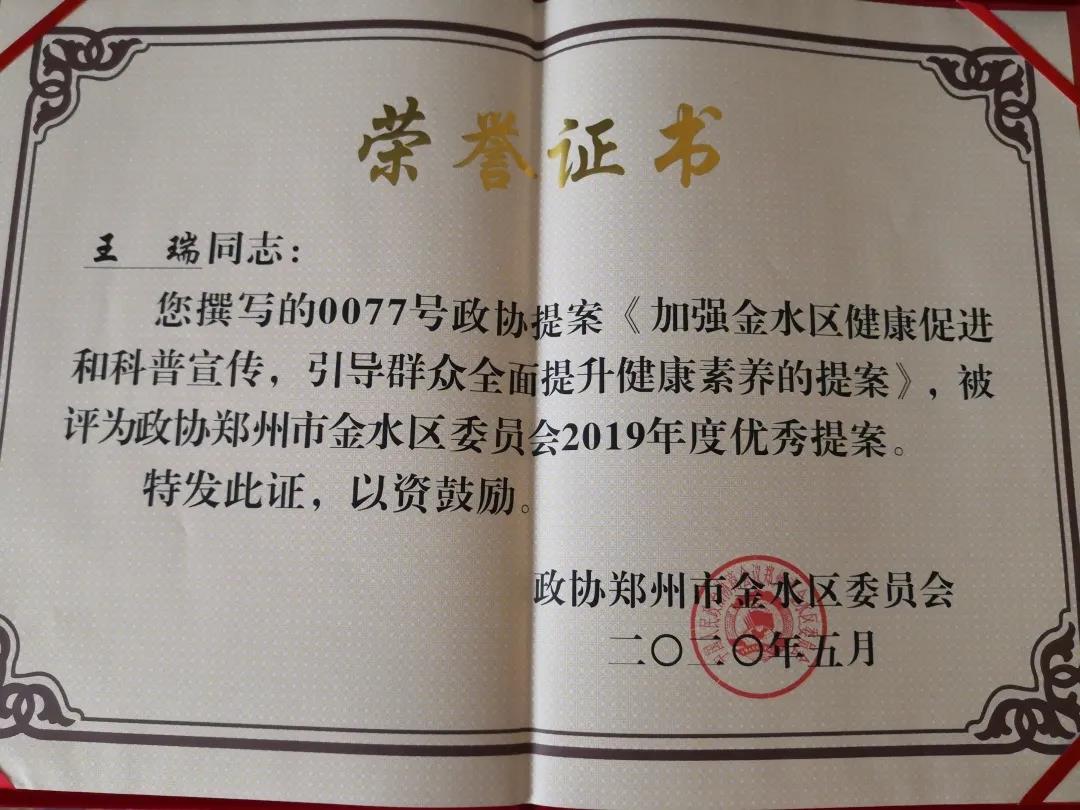 荣誉证书
王 瑞同志：
您撰写的0077号政协提案《加强金水区健康促进
和科普宣传，引导群众全面提升健康素养的提案》，被
评为政协郑州市金水区委员会2019年度优秀提案。
特发此证，以资鼓励。
政协郑州市金水区委员会
二〇二〇年五月